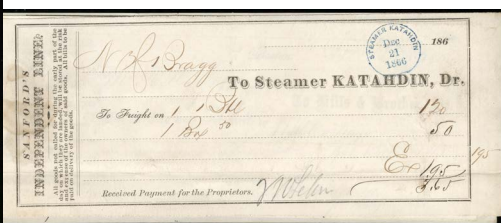 SANFORD'S
INDEPENDENT LINE.
All goods not called for during the early part of the
day on which they are landed will be stored at the risk
and expense of the owners of said goods. All bills to be
paid on delivery of the goods.
STEAMER KATAHDIN
Dec
21
1866
186
N Bragg
To Steamer KATAHDIN, Dr.
To Freight on 1 120
1 Box 50 50
195
Ex 195
3.65
Received Payment for the Proprietors.